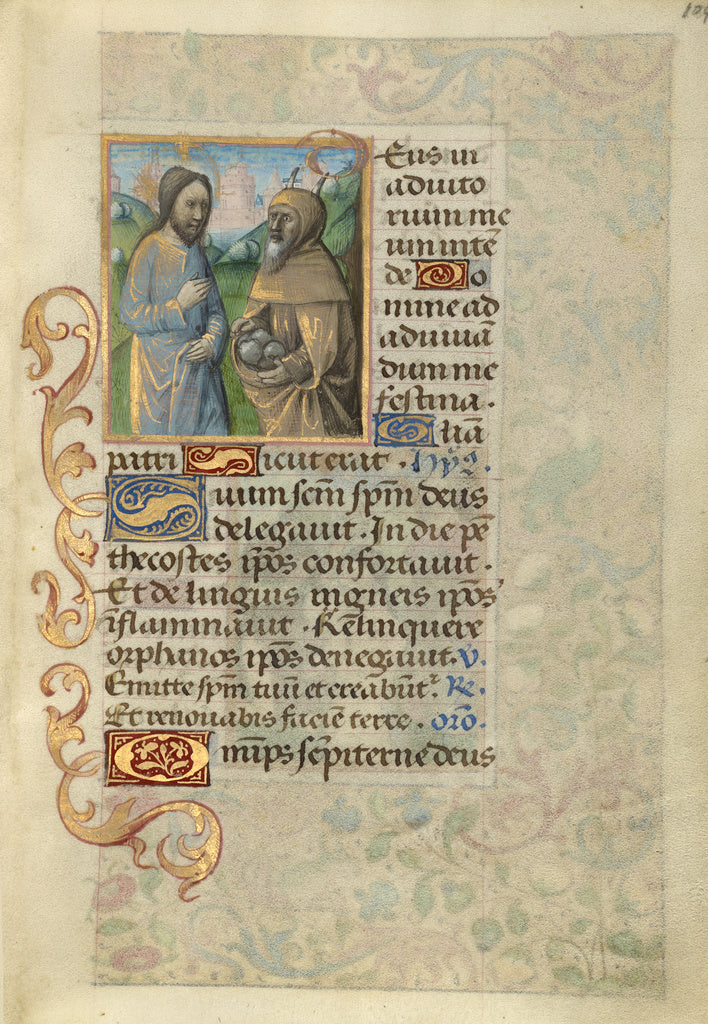 Eus in
adiuto
rium me
um intē
de Do
mine ad
adiuuā
dum me
festina.
Gliā
patri Sicut erat. Hyꝰ.
Suum sc̄m sp̄m deus
delegauit. In die pē
thecostes ip̄os confortauit.
Et de linguis nigneis ip̄os
īflammauit. Relinquere
orphanos ip̄os denegauit. v.
Emitte sp̄m tuū et creābūtᷣ. Re.
Et renouabis faciē terre. orō.
Omīps sēpiterne deus